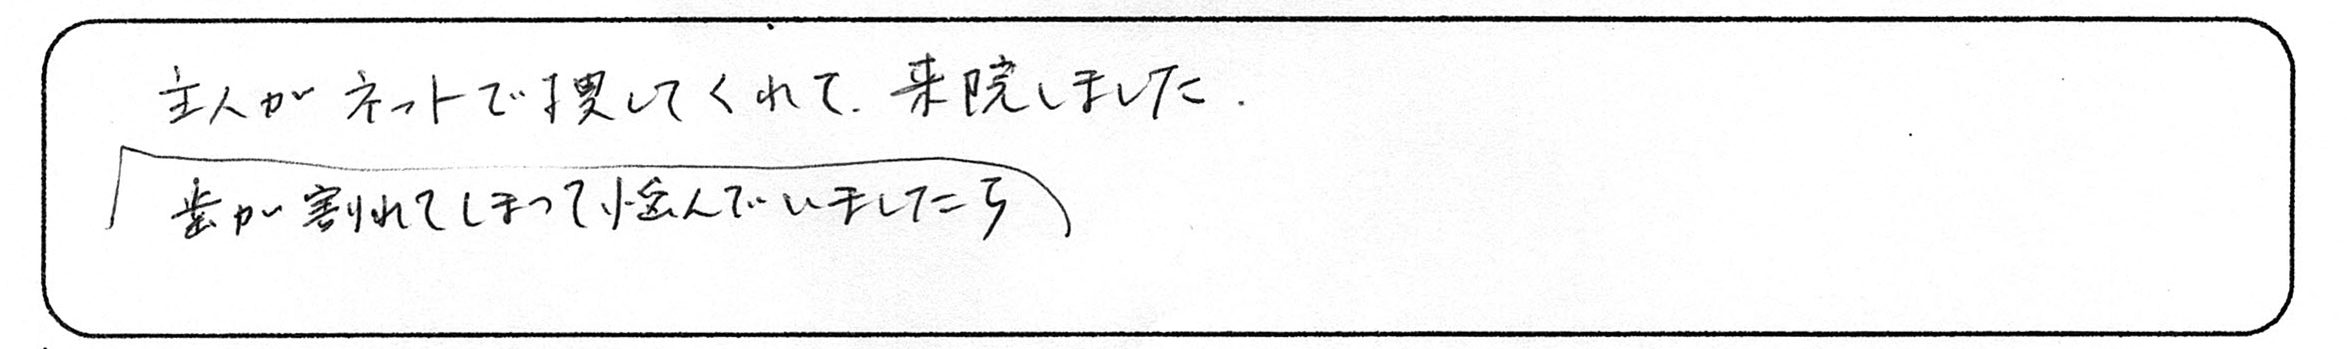 主人がネットで捜してくれて、来院しました.
歯が割れてしまって悩んでいましたら